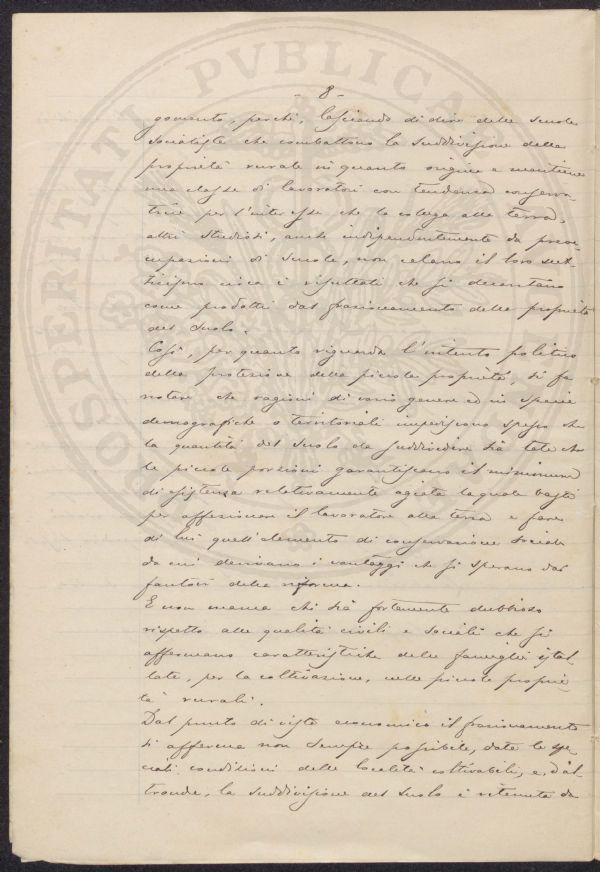 - 8 -
gomento, perchè, lasciando di dire delle scuole
socialiste che combattono la suddivisione della
proprietà rurale in quanto origina e mantiene
una classe di lavoratori con tendenza conserva
trice per l'interesse che la collega alla terra,
altri studiosi, anche indipendentemente da preoc-
cupazioni di scuole, non celano il loro scet-
ticismo circa i risultati che si decantano
come prodotti dal frazionamento della proprietà
del suolo.
Così, per quanto riguarda l'intento politico
della protezione della piccola proprietà, si fa
notare che ragioni di vario genere ed in specie
demografiche o territoriali impediscono spesso che
la quantità del suolo da suddividere sia tale che
le piccole porzioni garantiscano il minimum
di esistenza relativamente agiata la quale basti
per affezionare il lavoratore alla terra e fare
di lui quell'elemento di conservazione sociale
da cui derivano i vantaggi che si sperano dai
fautori della riforma.
E non manca chi sia fortemente dubbioso
rispetto alle qualità civili e sociali che si
affermano caratteristiche delle famiglie istal-
late, per la coltivazione, nelle piccole proprie
tà rurali.
Dal punto di vista economico il frazionamento
si afferma non sempre possibile, date le spe
ciali condizioni delle località coltivabili, e, d'al
tronde, la suddivisione del suolo è ritenuta da
PROSPERITATI PVBLICAE